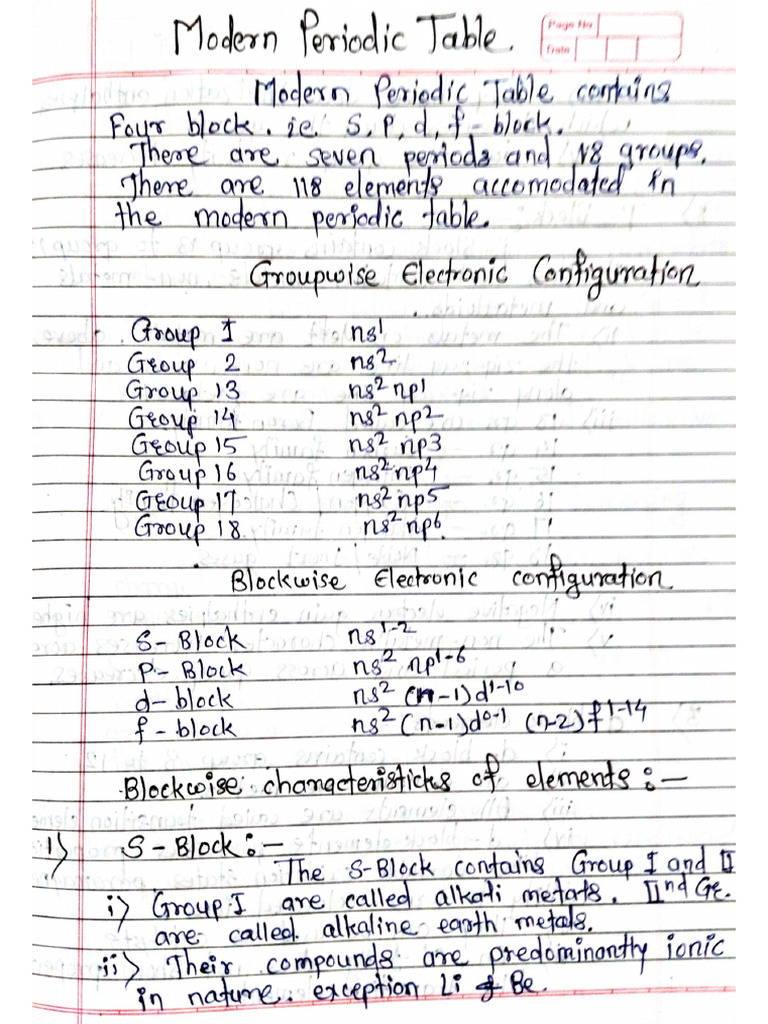 Modern Periodic Table.
Page No
Date
Modern Periodic Table contains
Four block. ie. S, P, d, f - block.
There are seven periods and 18 groups.
There are 118 elements accomodated in
the modern periodic table.
Groupwise Electronic Configuration
Group I ns¹
Group 2 ns²
Group 13 ns² np¹
Group 14 ns² np2
Group 15 ns² np3
Group 16 ns² np4
Group 17 ns² np5
Group 18 ns² np6.
Blockwise Electronic configuration
S - Block ns¹⁻²
P - Block ns² np¹⁻⁶
d - block ns² (n-1)d¹⁻¹⁰
f - block ns² (n-1)d⁰⁻¹ (n-2)f¹⁻¹⁴
Blockwise characteristicks of elements :-
1) S - Block :-
The S-Block contains Group I and II
i) Group I are called alkali metals. IInd Gr.
are called alkaline earth metals.
ii) Their compounds are predominantly ionic
in nature. exception Li & Be.